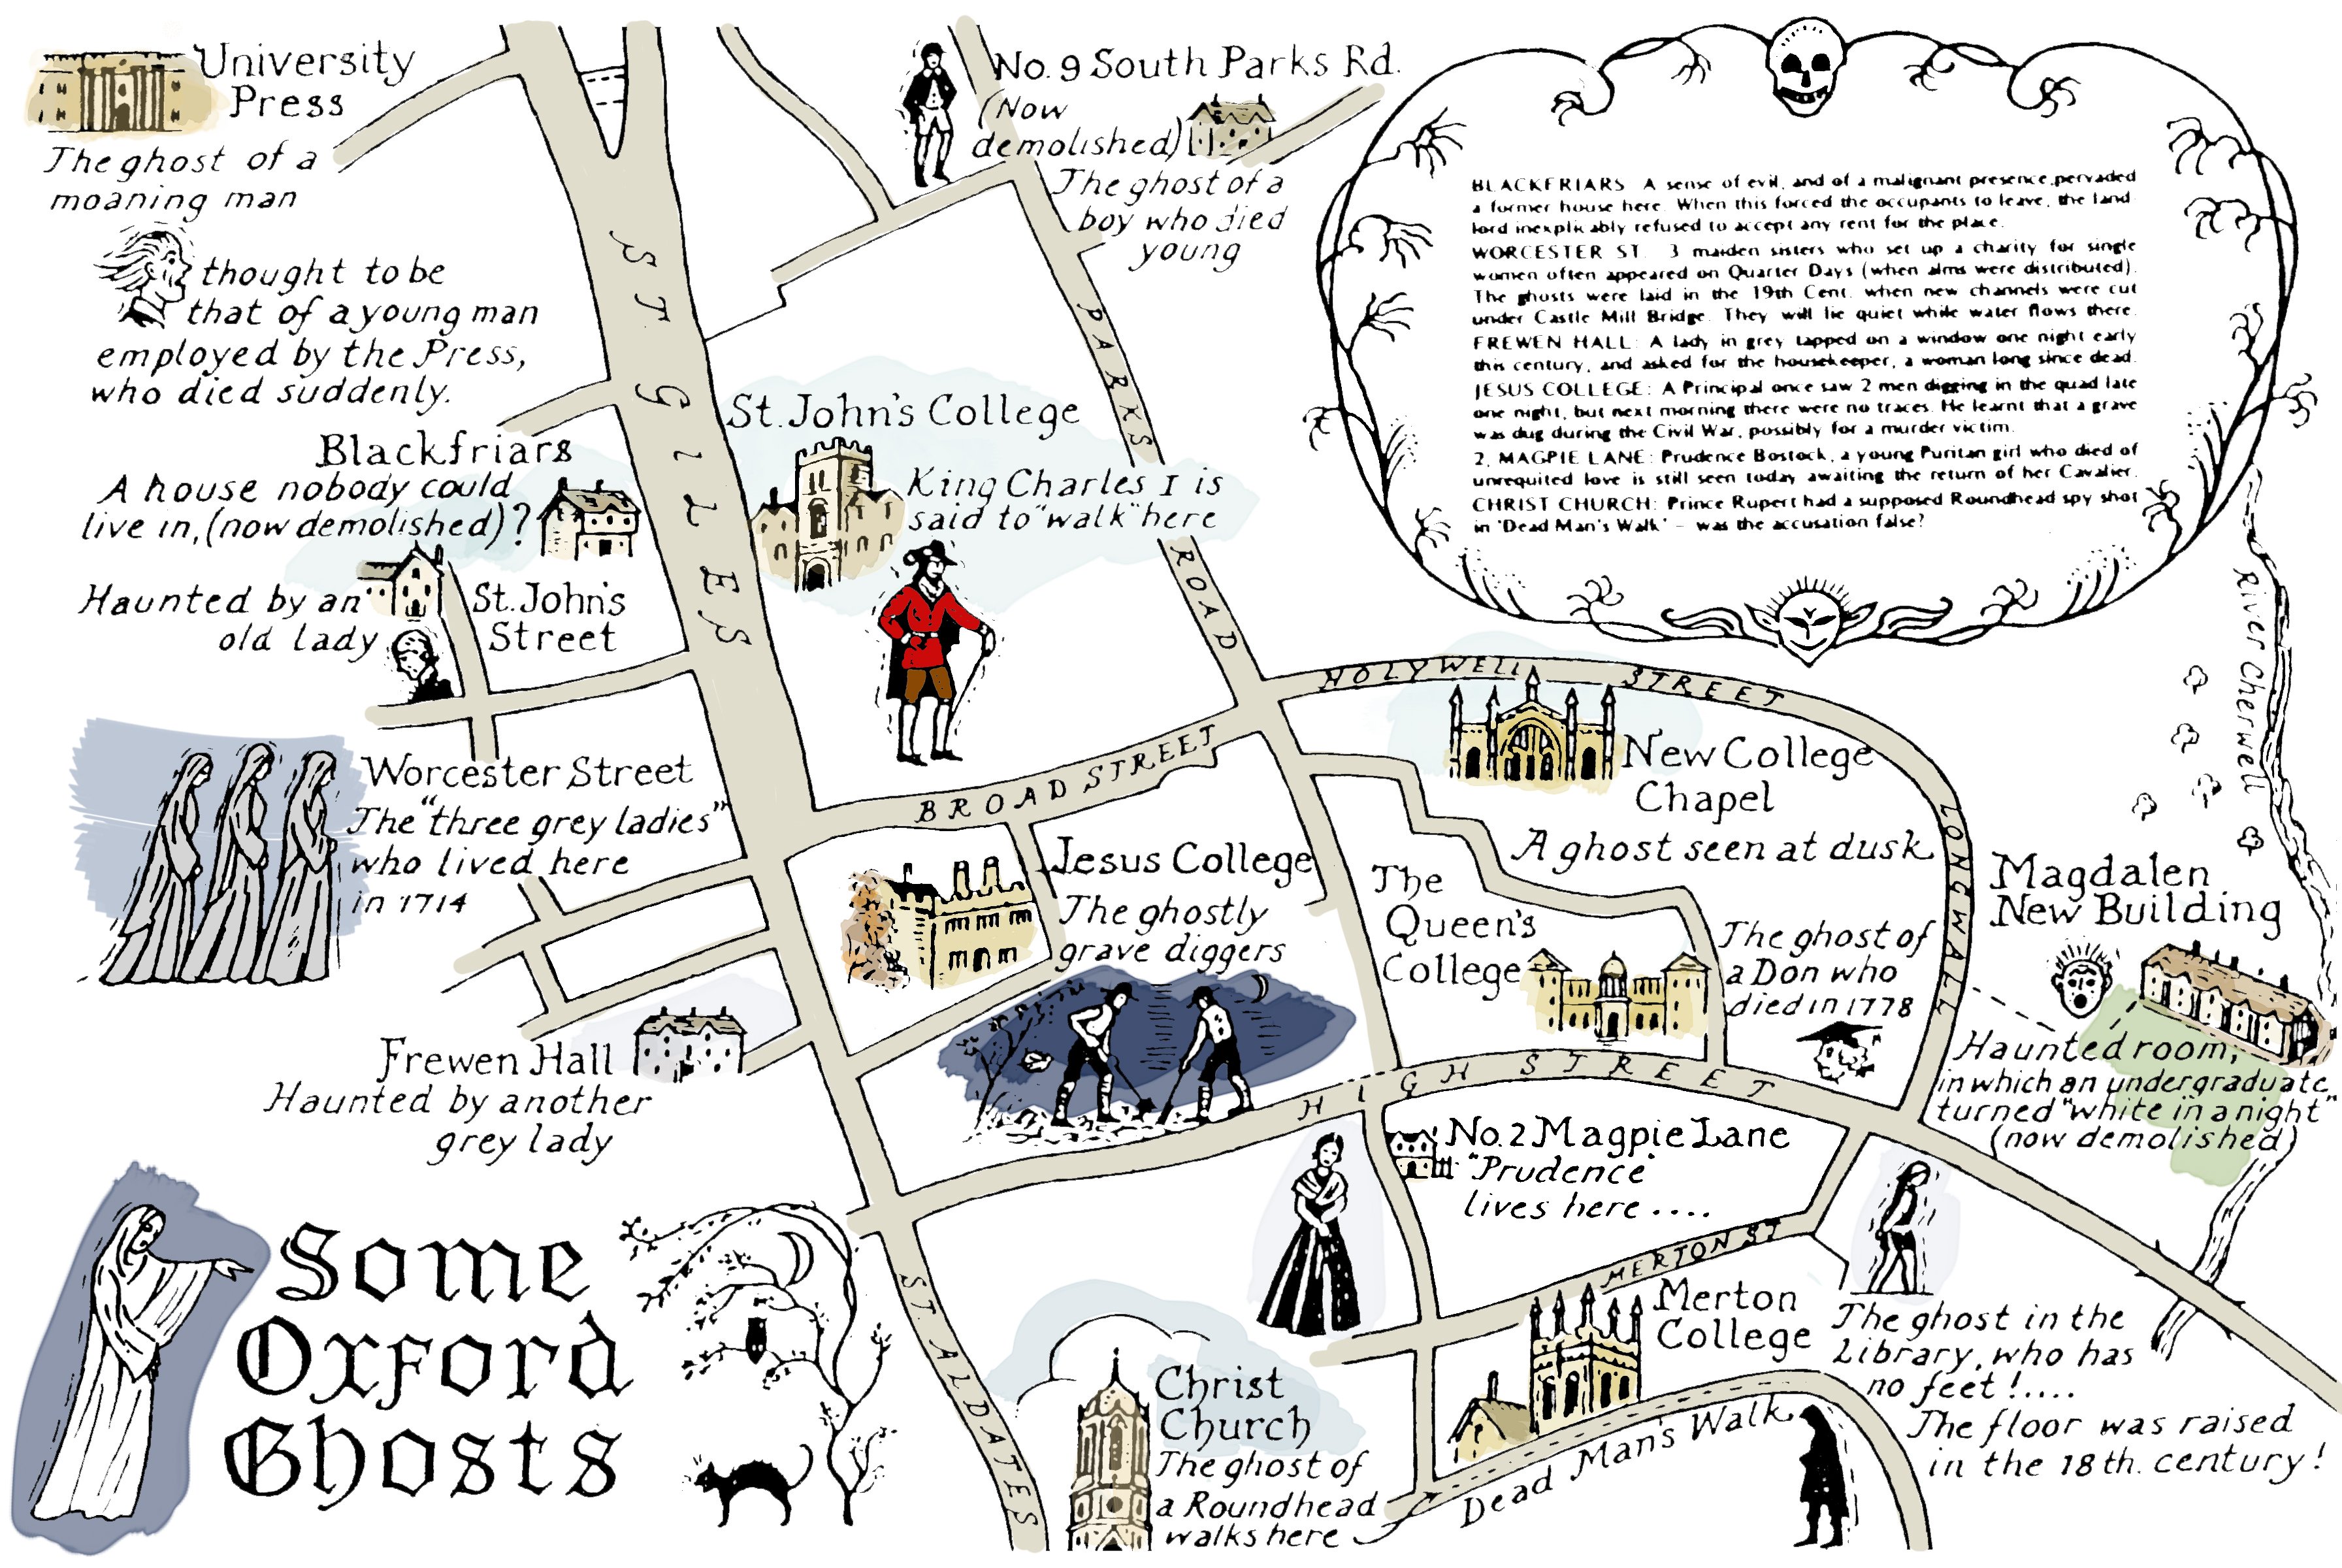 University
Press
The ghost of a
moaning man
thought to be
that of a young man
employed by the Press,
who died suddenly.
No. 9 South Parks Rd.
(Now
demolished)
The ghost of a
boy who died
young
BLACKFRIARS A sense of evil, and of a malignant presence, pervaded
a former house here. When this forced the occupants to leave, the land
lord inexplicably refused to accept any rent for the place.
WORCESTER ST. 3 maiden sisters who set up a charity for single
women often appeared on Quarter Days (when alms were distributed).
The ghosts were laid in the 19th Cent. when new channels were cut
under Castle Mill Bridge. They will lie quiet while water flows there.
FREWEN HALL: A lady in grey tapped on a window one night early
this century, and asked for the housekeeper, a woman long since dead.
JESUS COLLEGE: A Principal once saw 2 men digging in the quad late
one night, but next morning there were no traces. He learnt that a grave
was dug during the Civil War, possibly for a murder victim.
2, MAGPIE LANE: Prudence Bostock, a young Puritan girl who died of
unrequited love is still seen today awaiting the return of her Cavalier.
CHRIST CHURCH: Prince Rupert had a supposed Roundhead spy shot
in 'Dead Man's Walk' – was the accusation false?
ST GILES
PARKS
ROAD
St. John's College
King Charles I is
said to "walk" here
Blackfriars
A house nobody could
live in, (now demolished)?
Haunted by an
old lady
St. John's
Street
River Cherwell
HOLYWELL STREET
BROAD STREET
New College
Chapel
A ghost seen at dusk
Worcester Street
The "three grey ladies"
who lived here
in 1714
Jesus College
The ghostly
grave diggers
The
Queen's
College
The ghost of
a Don who
died in 1778
LONGWALL
Magdalen
New Building
Haunted room,
in which an undergraduate
turned "white in a night"
(now demolished)
Frewen Hall
Haunted by another
grey lady
HIGH STREET
No. 2 Magpie Lane
"Prudence"
lives here ....
MERTON ST
Merton
College
The ghost in the
Library, who has
no feet!....
The floor was raised
in the 18th. century!
Some
Oxford
Ghosts
ST. ALDATES
Christ
Church
The ghost of
a Roundhead
walks here
Dead Man's Walk